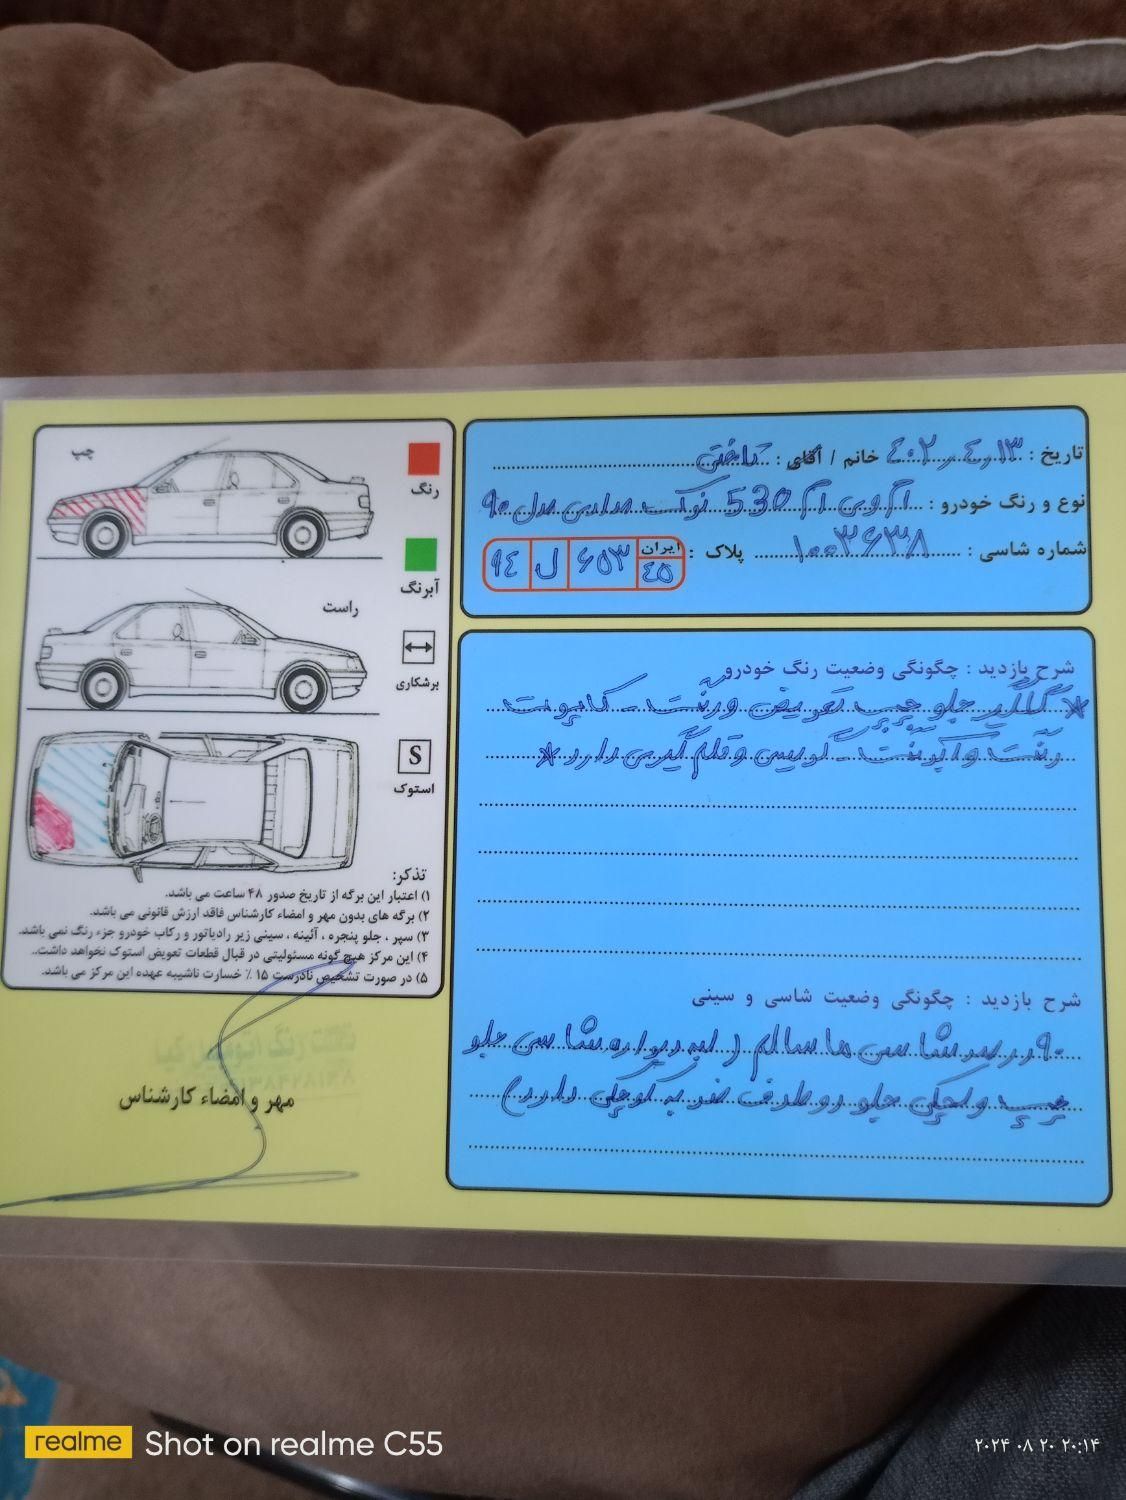 تاریخ : ۴۰۲٫۴٫۱۳ خانم / آقای :
نوع و رنگ خودرو : ام وی ام 530 نوک مدادی مدل ۹۰
شماره شاسی : ۱۰۰۳۶۳۸ پلاک : ایران ۴۵ ۶۵۳ ل ۹۴
شرح بازدید : چگونگی وضعیت رنگ خودرو
* گلگیر جلو چپ تعویض و رنگ - کاپوت
رنگ و آبرنگ - لیس و قلم گیری دارد *
شرح بازدید : چگونگی وضعیت شاسی و سینی
سر شاسی ها سالم ( لبه دیواره شاسی جلو
چپ و جلو دو طرف ضربه کوچک دارد )
چپ
رنگ
آبرنگ
راست
برشکاری
S
استوک
تذکر:
۱) اعتبار این برگه از تاریخ صدور ۴۸ ساعت می باشد.
۲) برگه های بدون مهر و امضاء کارشناس فاقد ارزش قانونی می باشد.
۳) سپر ، جلو پنجره ، آئینه ، سینی زیر رادیاتور و رکاب خودرو جزء رنگ نمی باشد.
۴) این مرکز هیچ گونه مسئولیتی در قبال قطعات تعویض استوک نخواهد داشت..
۵) در صورت تشخیص نادرست ۱۵ ٪ خسارت ناشیبه عهده این مرکز می باشد.
مهر و امضاء کارشناس
realme Shot on realme C55
۲۰۲۴ ۰۸ ۲۰ ۲۰:۱۴